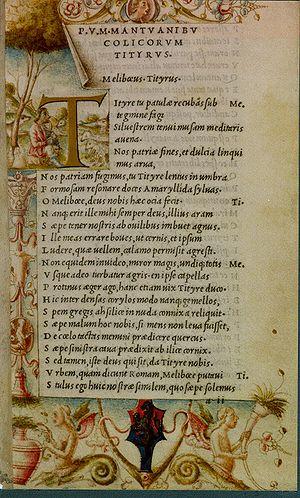 P. V. M. MANTVANI BV
COLICORVM
TITYRVS.
Meliboeus. Tityrus.
Tityre tu patulæ recubás sub Me.
tegmine fagi
Siluestrem tenui musam meditaris
auena,
Nos patriæ fines, et dulcia linqui
mus arua,
Nos patriam fugimus, tu Tityre lentus in umbra
Formosam resonare doces Amaryllida syluas.
O Meliboee, deus nobis hæc ocia fecit. Ti.
Nanq; erit ille mihi semper deus, illius aram
Sæpe tener nostris ab ouilibus imbuet agnus.
Ille meas errare boues, ut cernis, et ipsum
Ludere, quæ uellem, calamo permisit agresti.
Non equidem inuideo, miror magis, undiq; totis Me.
Vsque adeo turbatur agris. en ipse capellas
Protinus æger ago, hanc etiam uix Tityre duco.
Hic inter densas corylos modo nanq; gemellos,
Spem gregis ah silice in nuda connixa reliquit.
Sæpe malum hoc nobis, si mens non leua fuisset,
De coelo tactas memini prædicere quercus.
Sæpe sinistra caua prædixit ab ilice cornix.
Sed tamen, iste deus qui sit, da Tityre nobis.
Vrbem, quam dicunt Romam, Meliboee putaui Ti.
Stultus ego huic nostræ similem, quo sæpe solemus
a ii